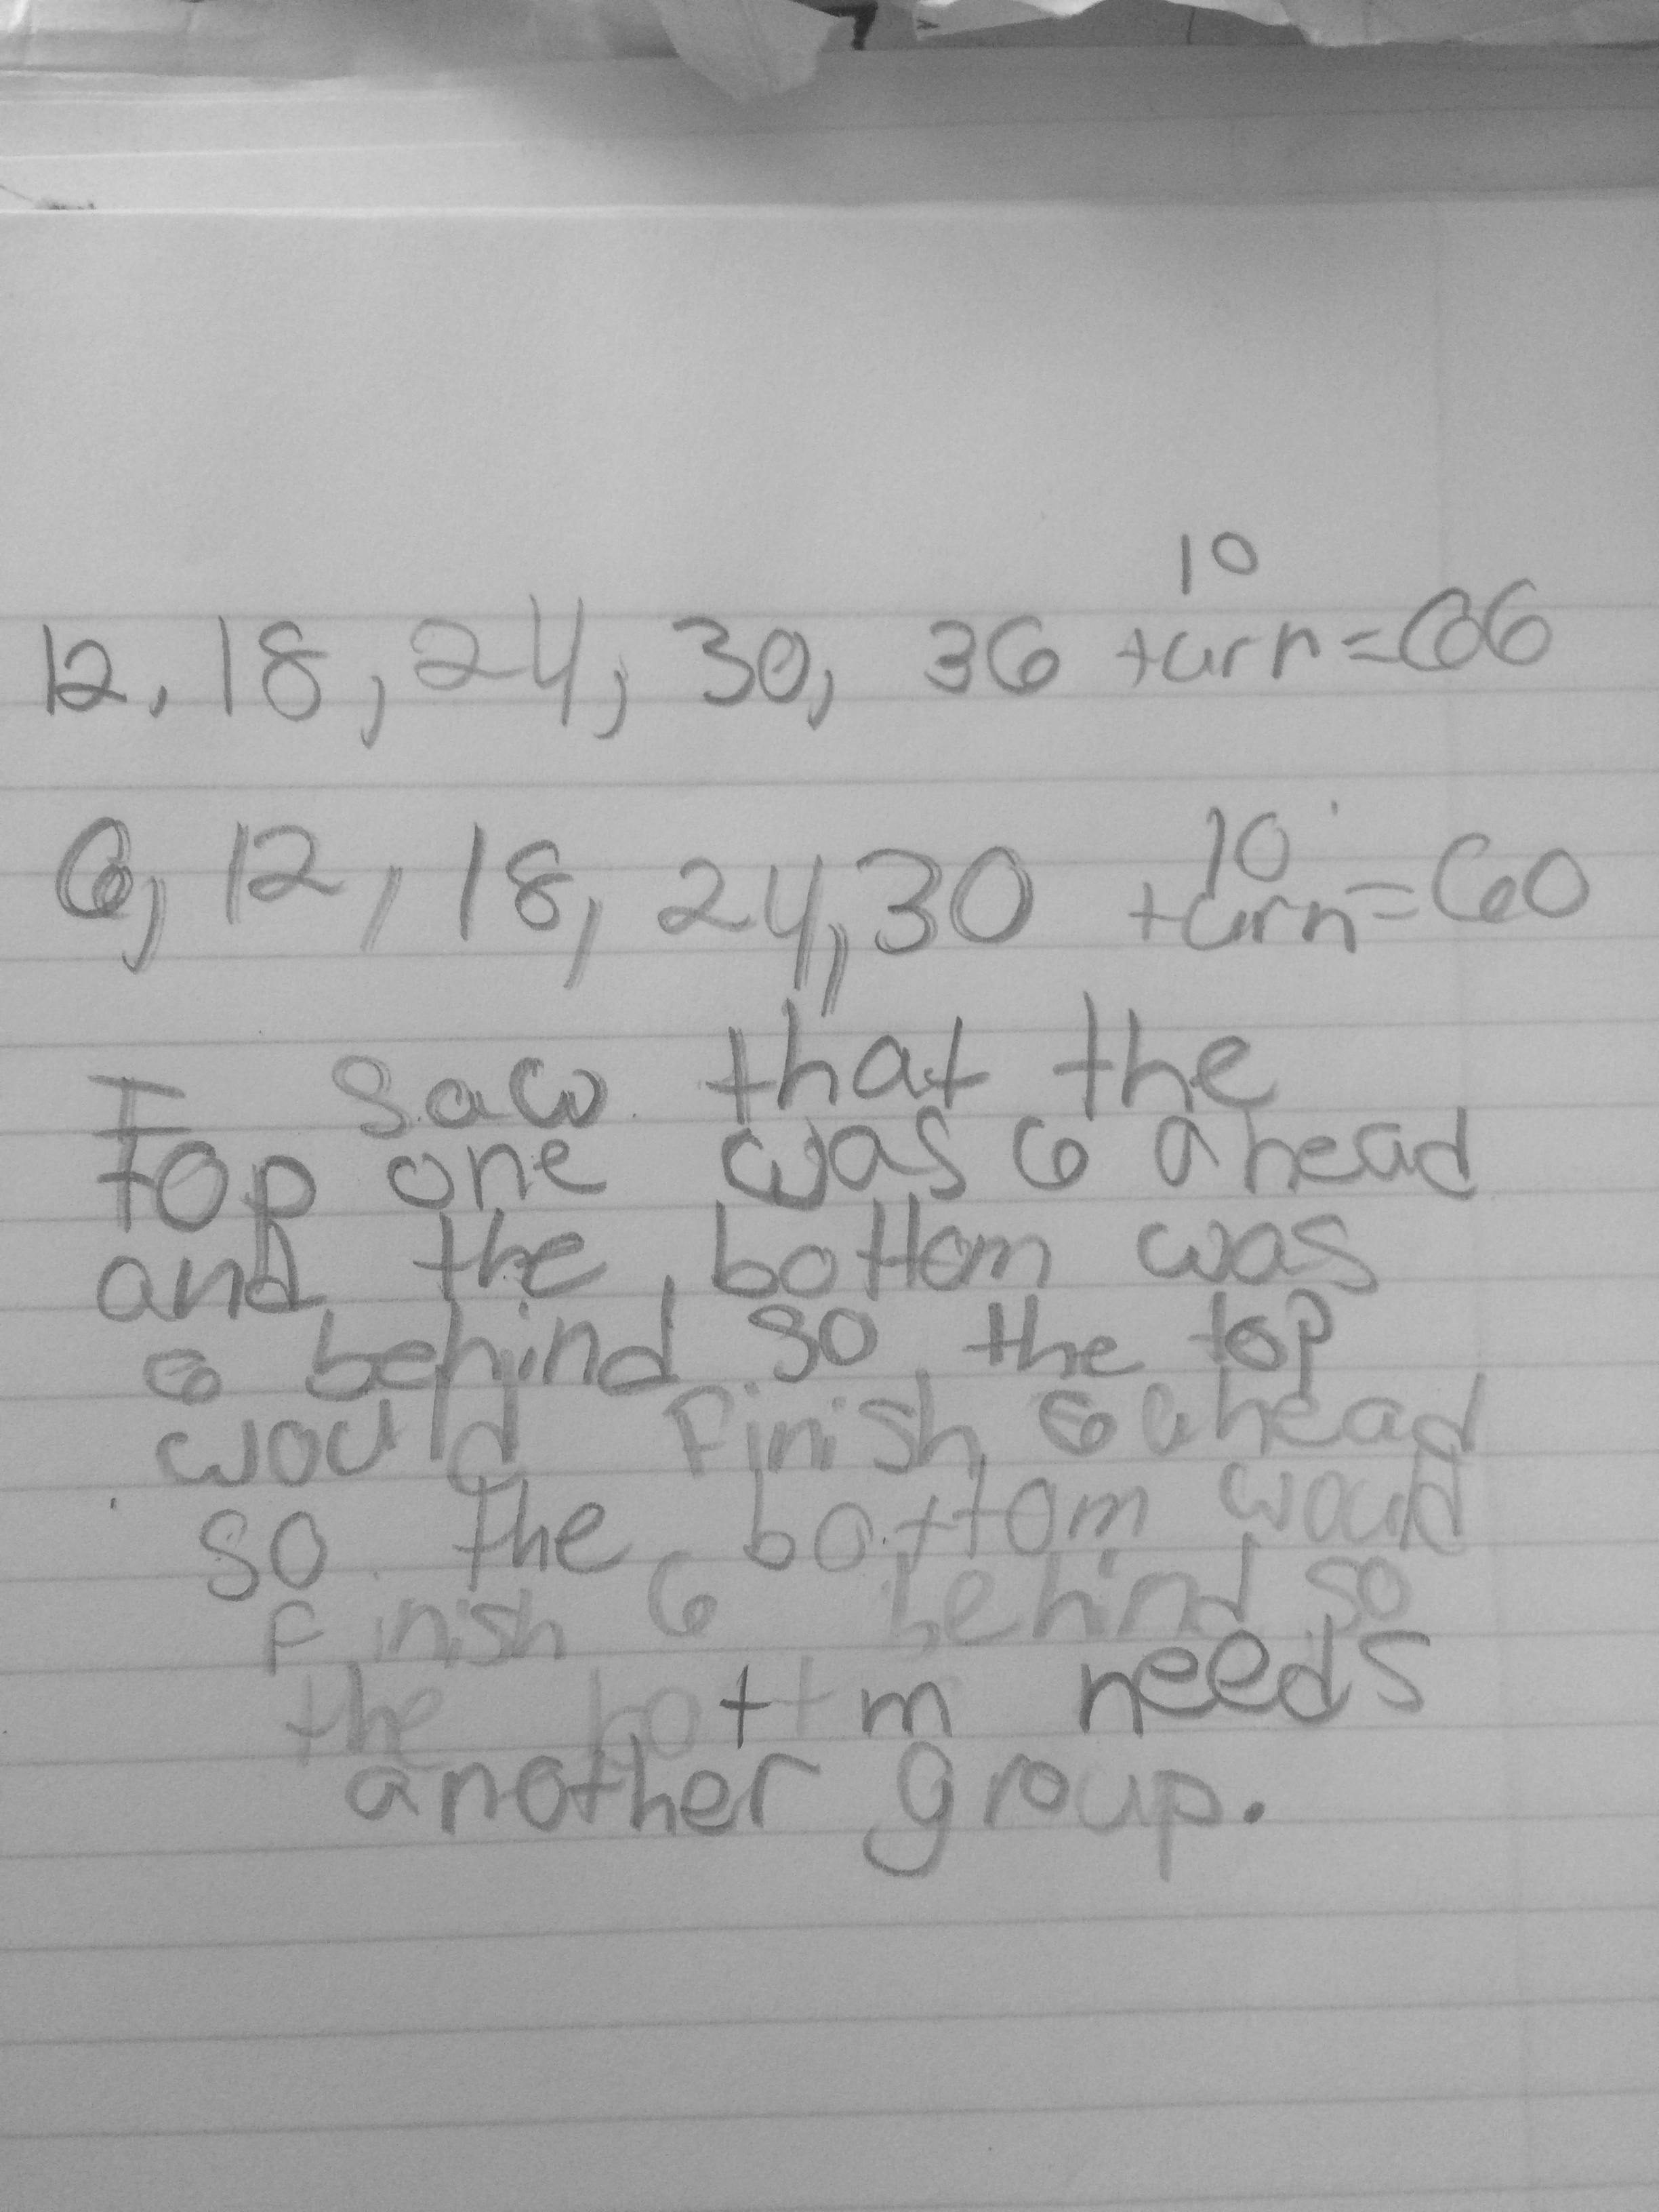 10
12, 18, 24, 30, 36 turn=66
10
6, 12, 18, 24, 30 turn=60
I saw that the
top one was 6 ahead
and the bottom was
6 behind so the top
would finish 6 ahead
so the bottom would
finish 6 behind so
the bottm needs
another group.